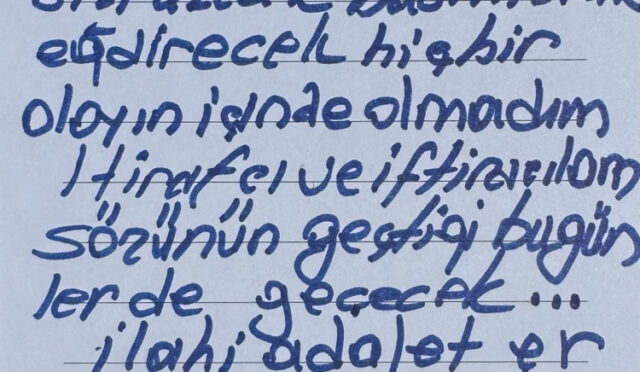 eğdirecek hiçbir
olayın içinde olmadım
İtirafcı ve iftiracıların
sözünün geçtiği bugün
lerde geçecek...
ilahi adalet er